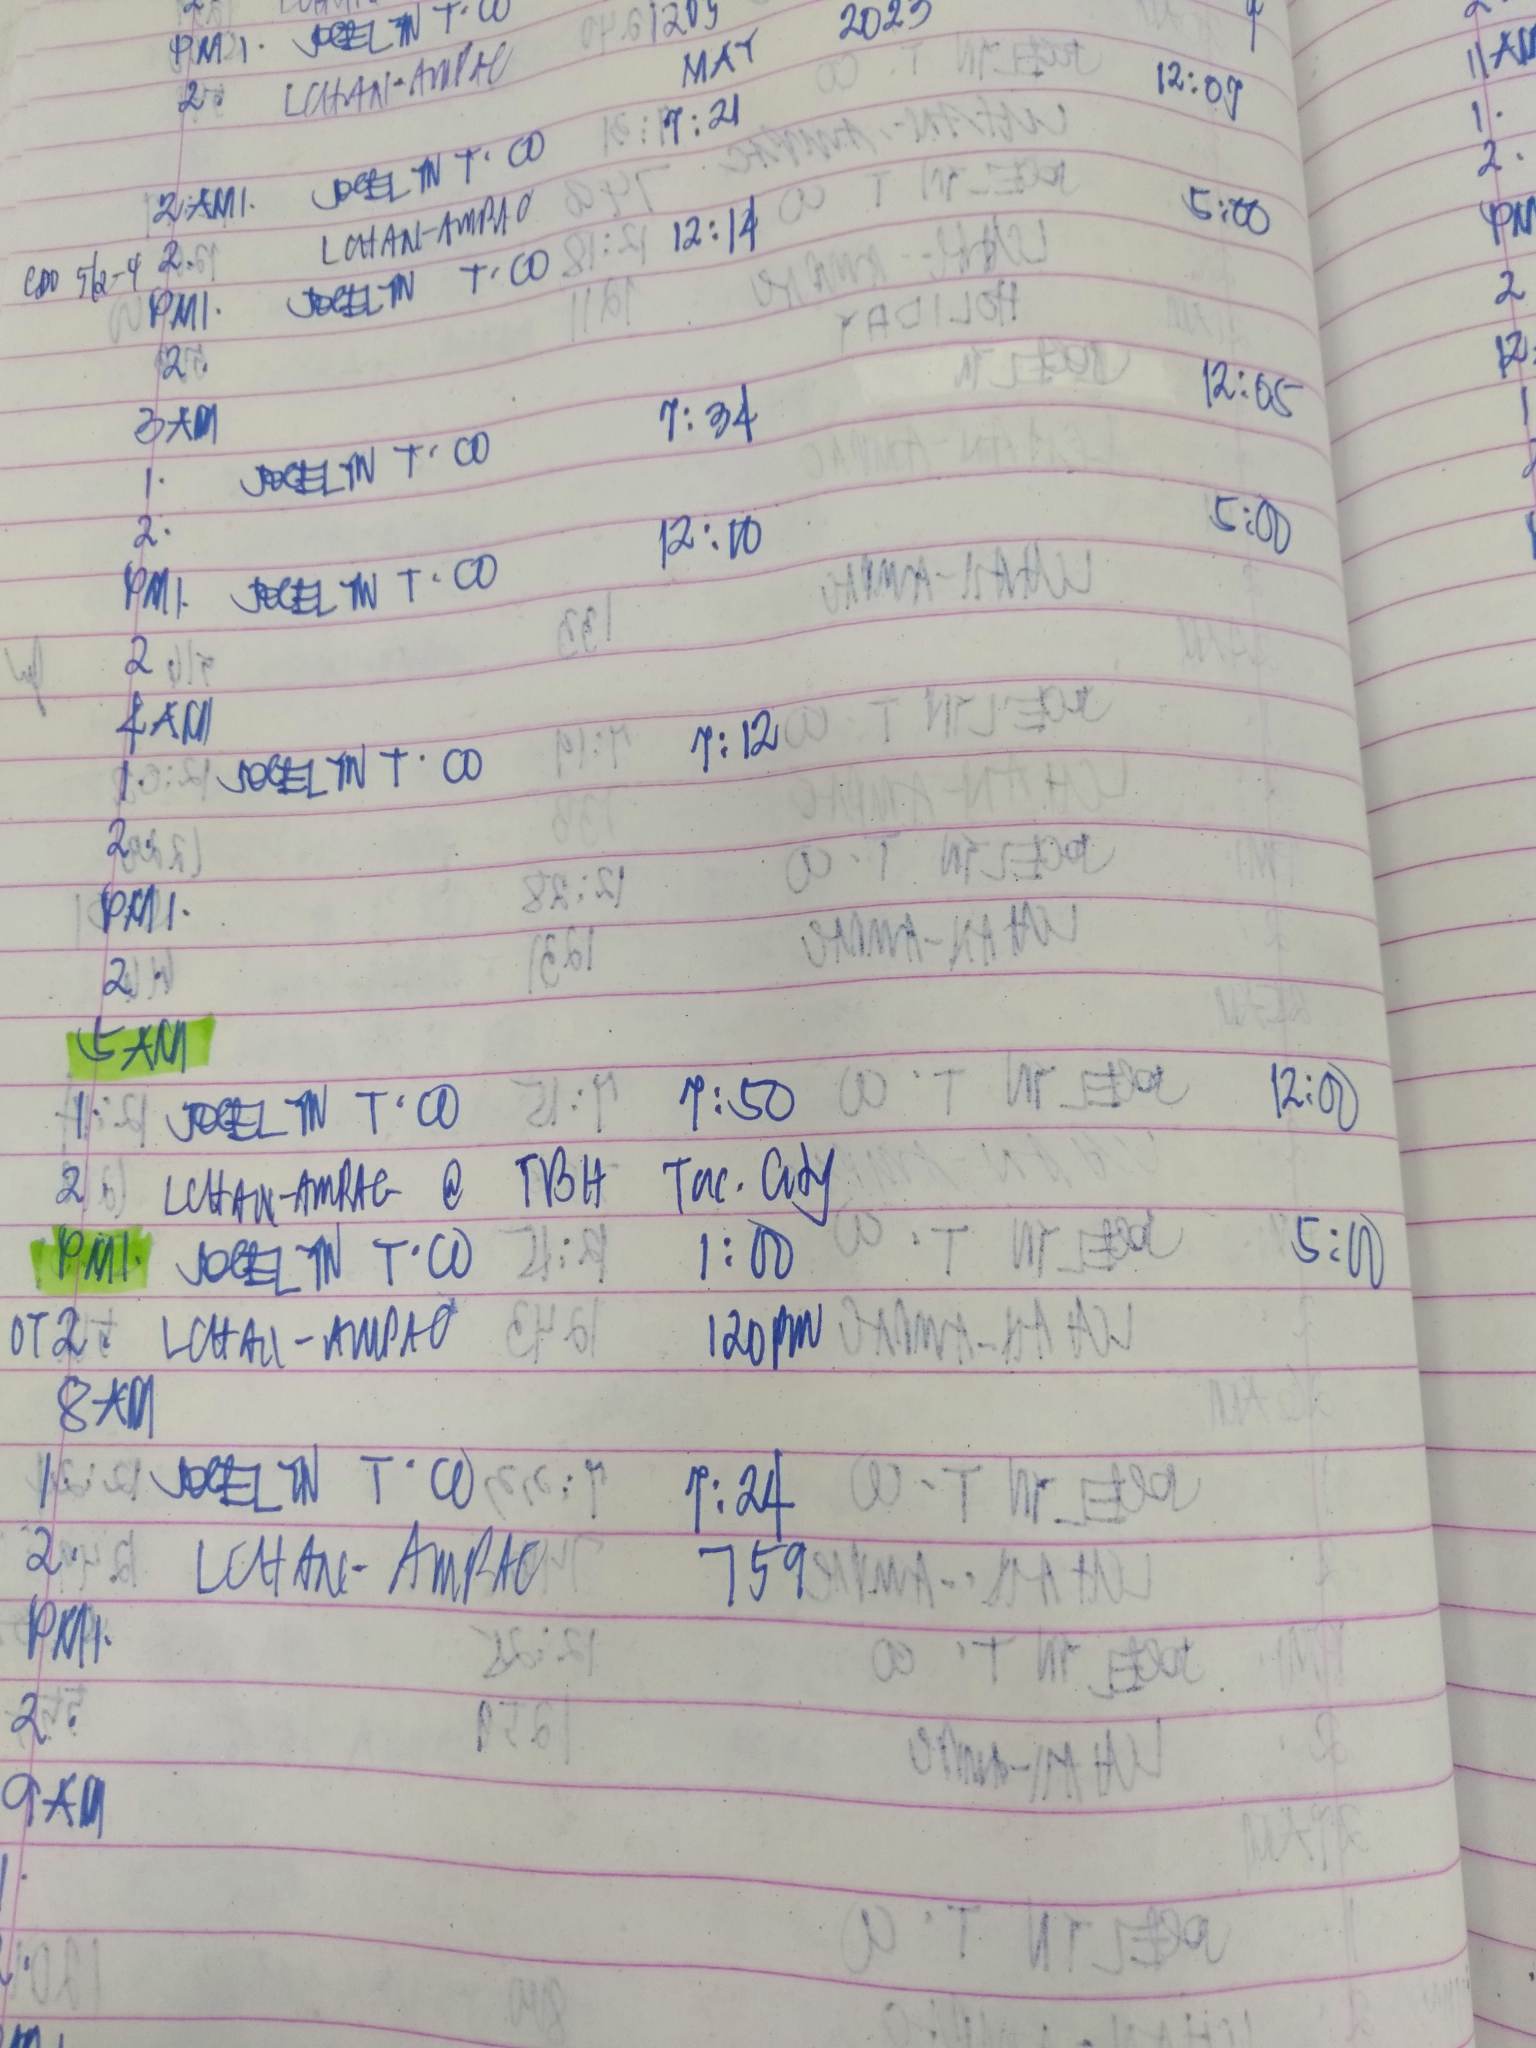 PM 1. JOCELYN T. CO 1209
2. LCHAN-AMPAC
MAY 2023
2 AM 1. JOCELYN T. CO 7:21 12:09
CDO 5/2-4 2. LCHAN-AMPAC
PM 1. JOCELYN T. CO 12:14 5:00
2.
3 AM
1. JOCELYN T. CO 7:34 12:05
2.
PM 1. JOCELYN T. CO 12:10 5:00
2
4 AM
1. JOCELYN T. CO 7:12
2.
PM 1.
2
5 AM
1. JOCELYN T. CO 7:50 12:00
2 LCHAN-AMPAC @ TVBH Tac. City
PM 1. JOCELYN T. CO 1:00 5:00
OT 2. LCHAN-AMPAC 120 PM
8 AM
1 JOCELYN T. CO 7:24
2. LCHAN-AMPAC 759
PM 1.
2.
9 AM
1.